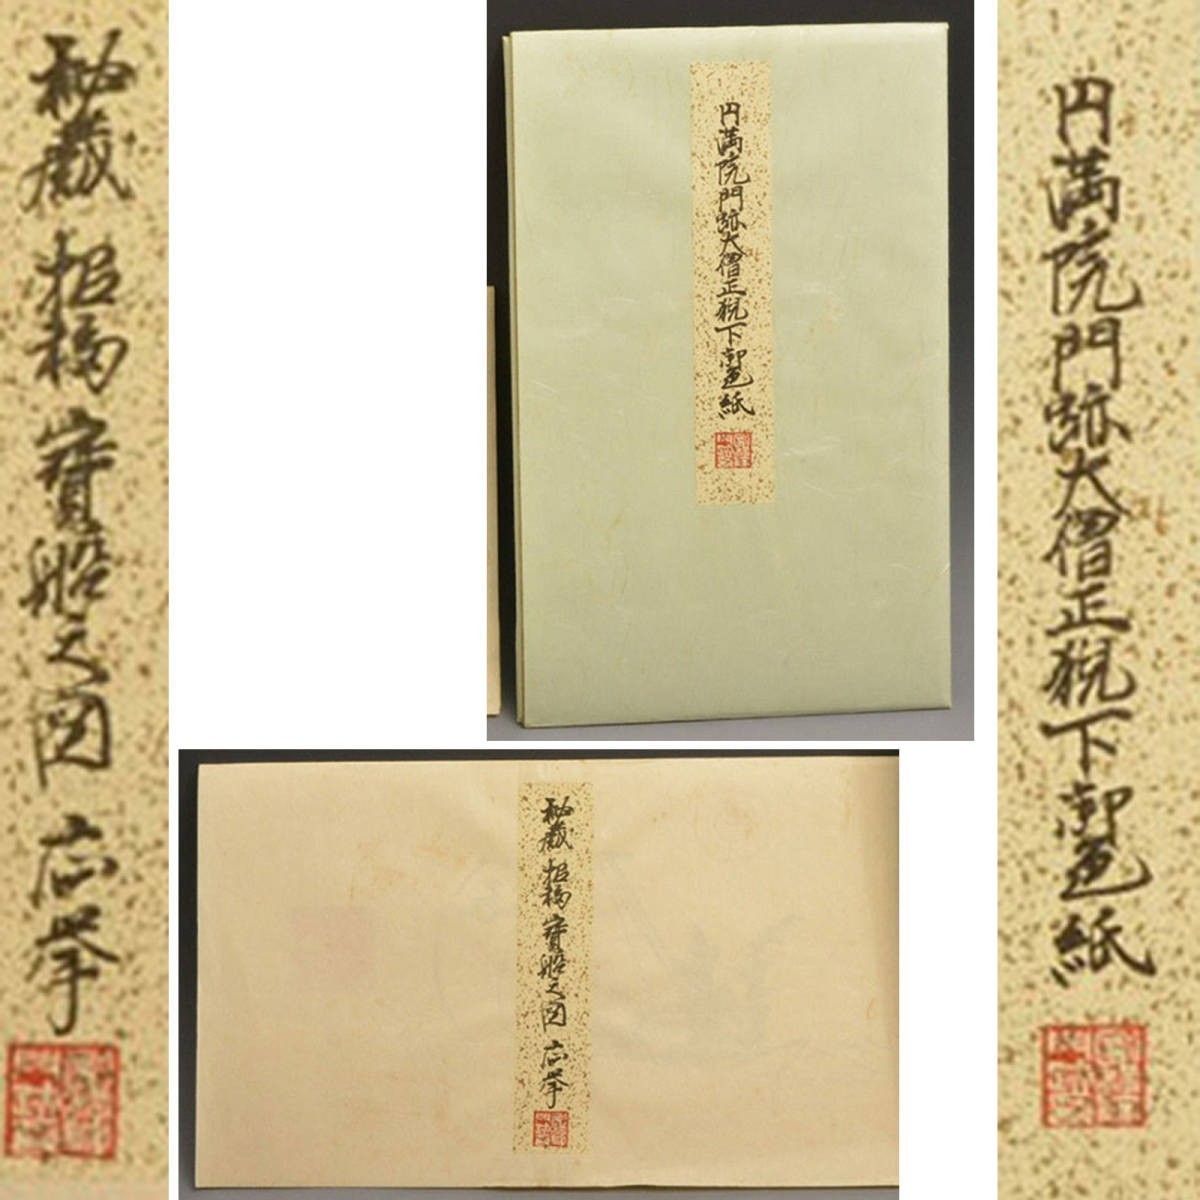 秘蔵 招福 寶船之図 応挙
円満院門跡大僧正猊下御色紙
円満院門跡大僧正猊下御色紙
秘蔵 招福 寶船之図 応挙